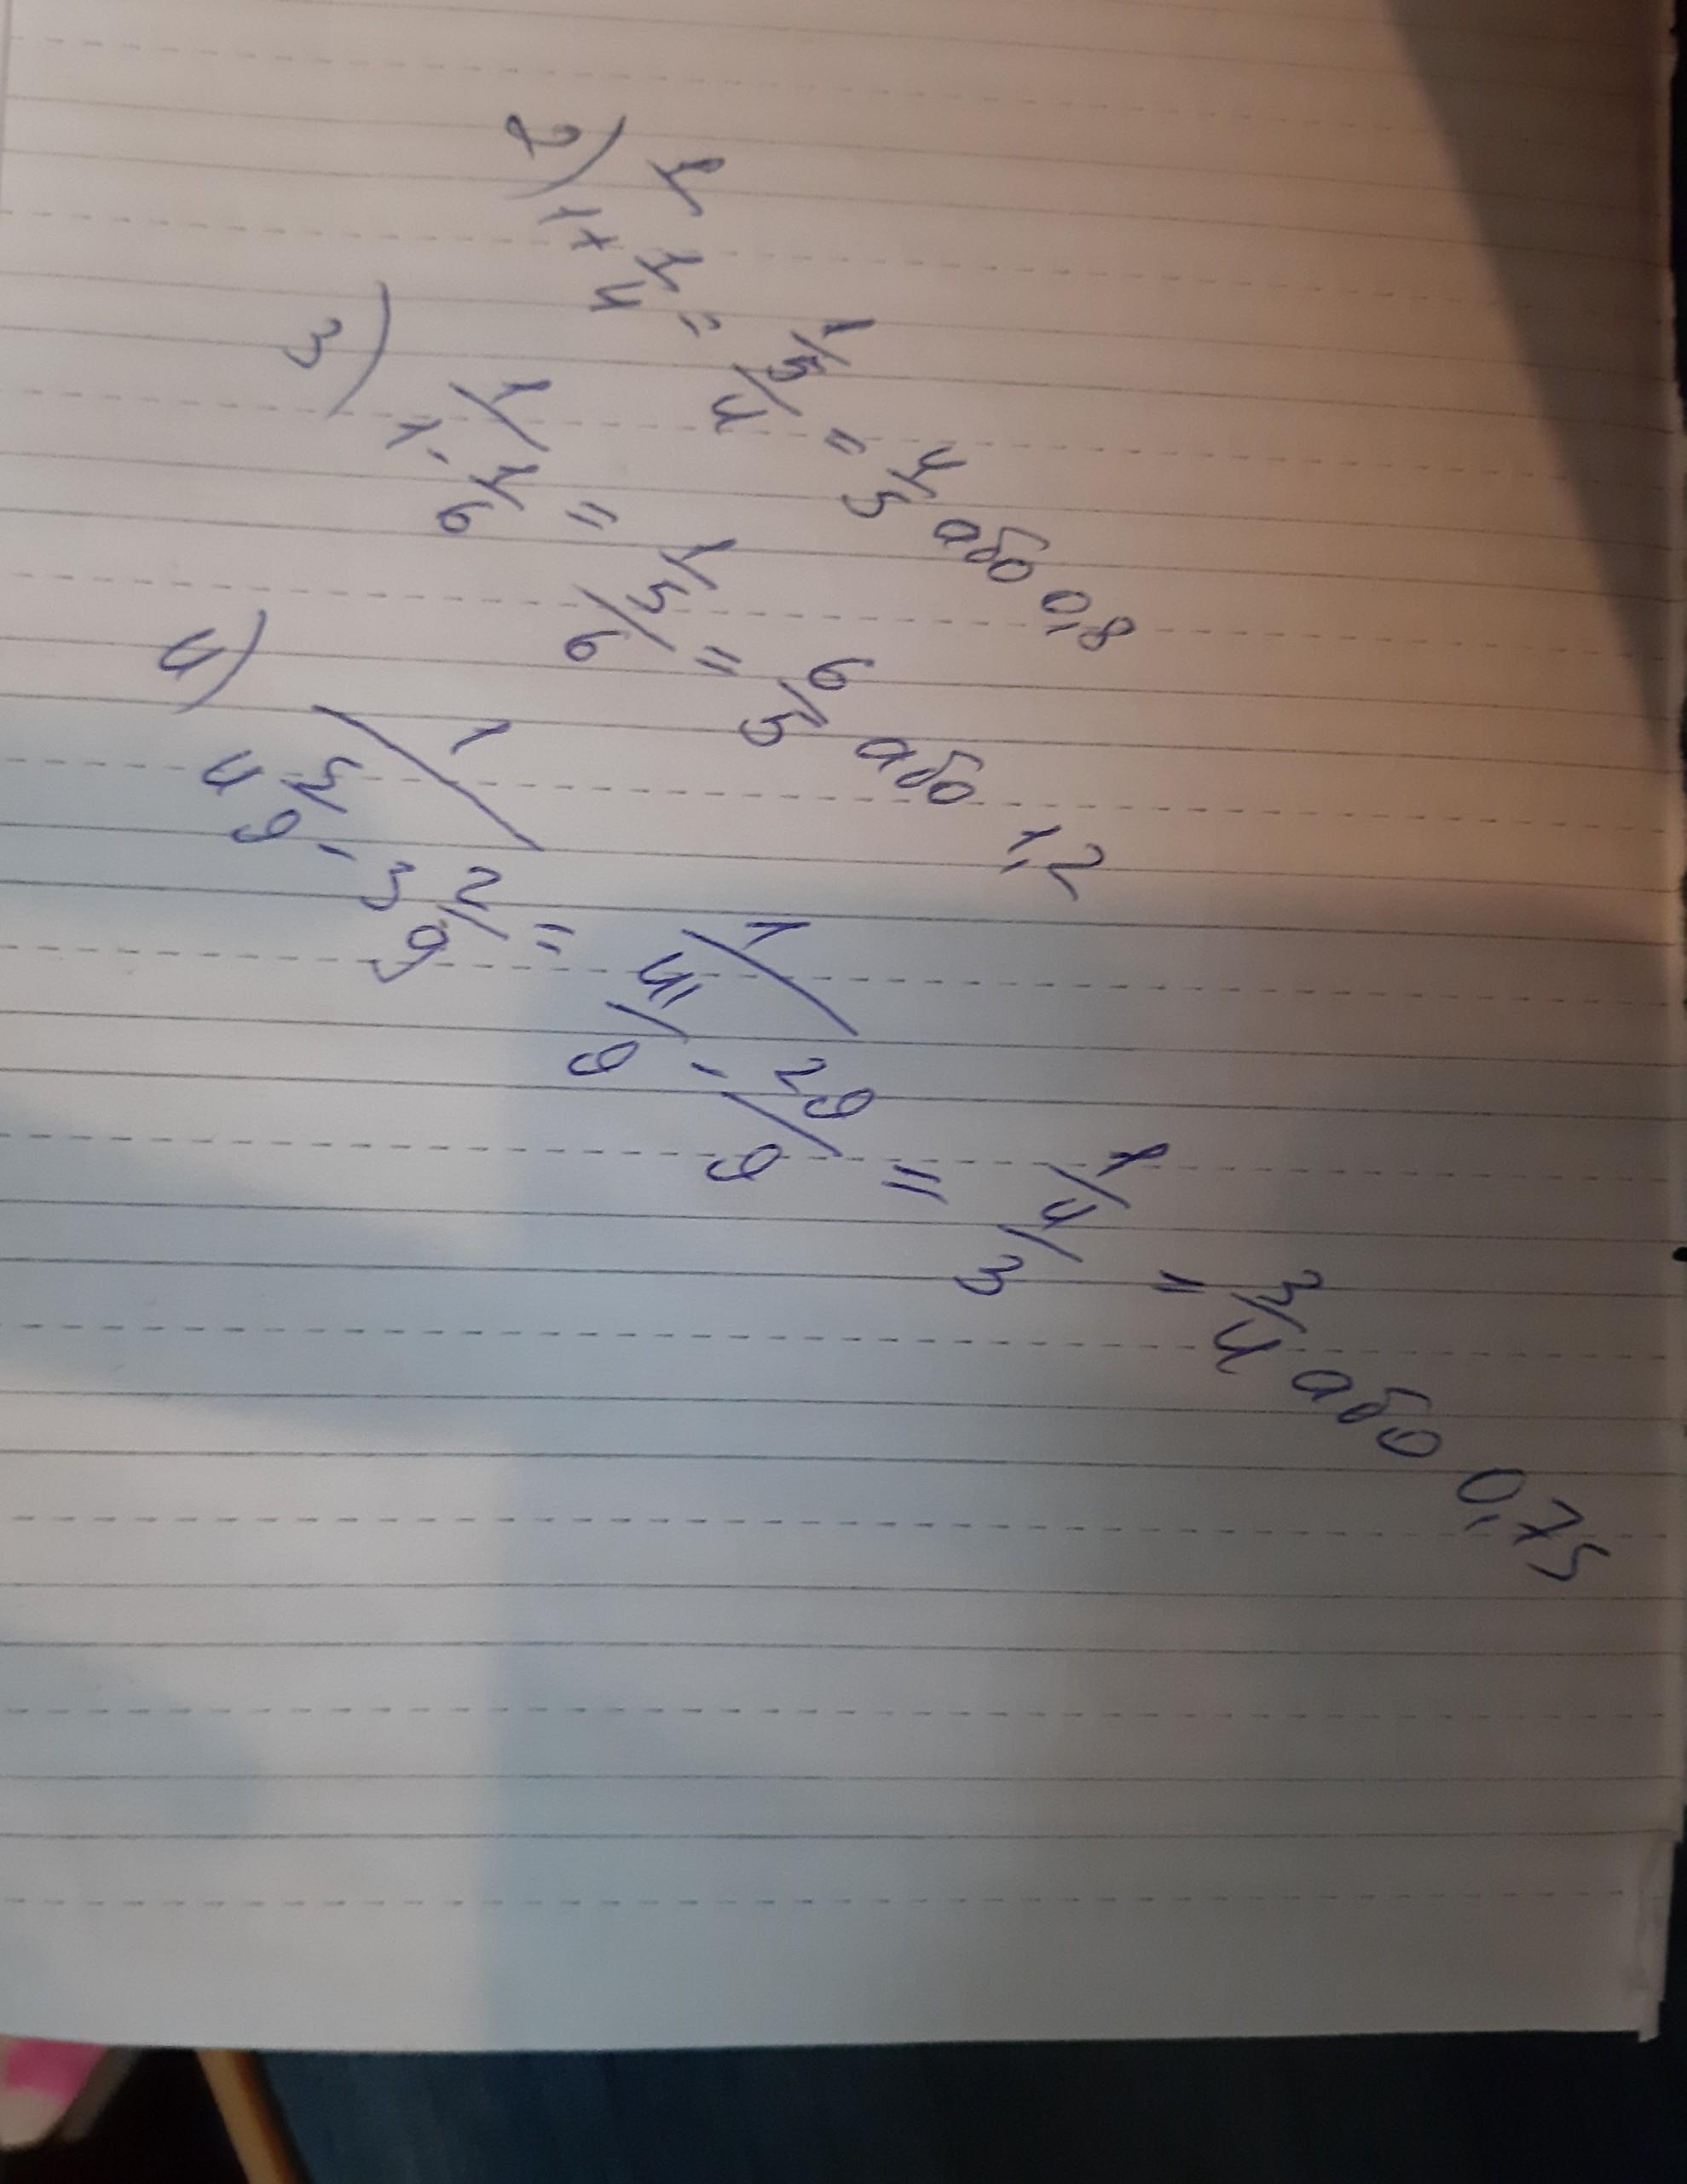 2) 1/(1+1/4) = 1/(5/4) = 4/5 або 0,8
3) 1/(1-1/6) = 1/(5/6) = 6/5 або 1,2
4) 1/(4 5/9 - 3 2/9) = 1/(41/9 - 29/9) = 1/(4/3) = 3/4 або 0,75